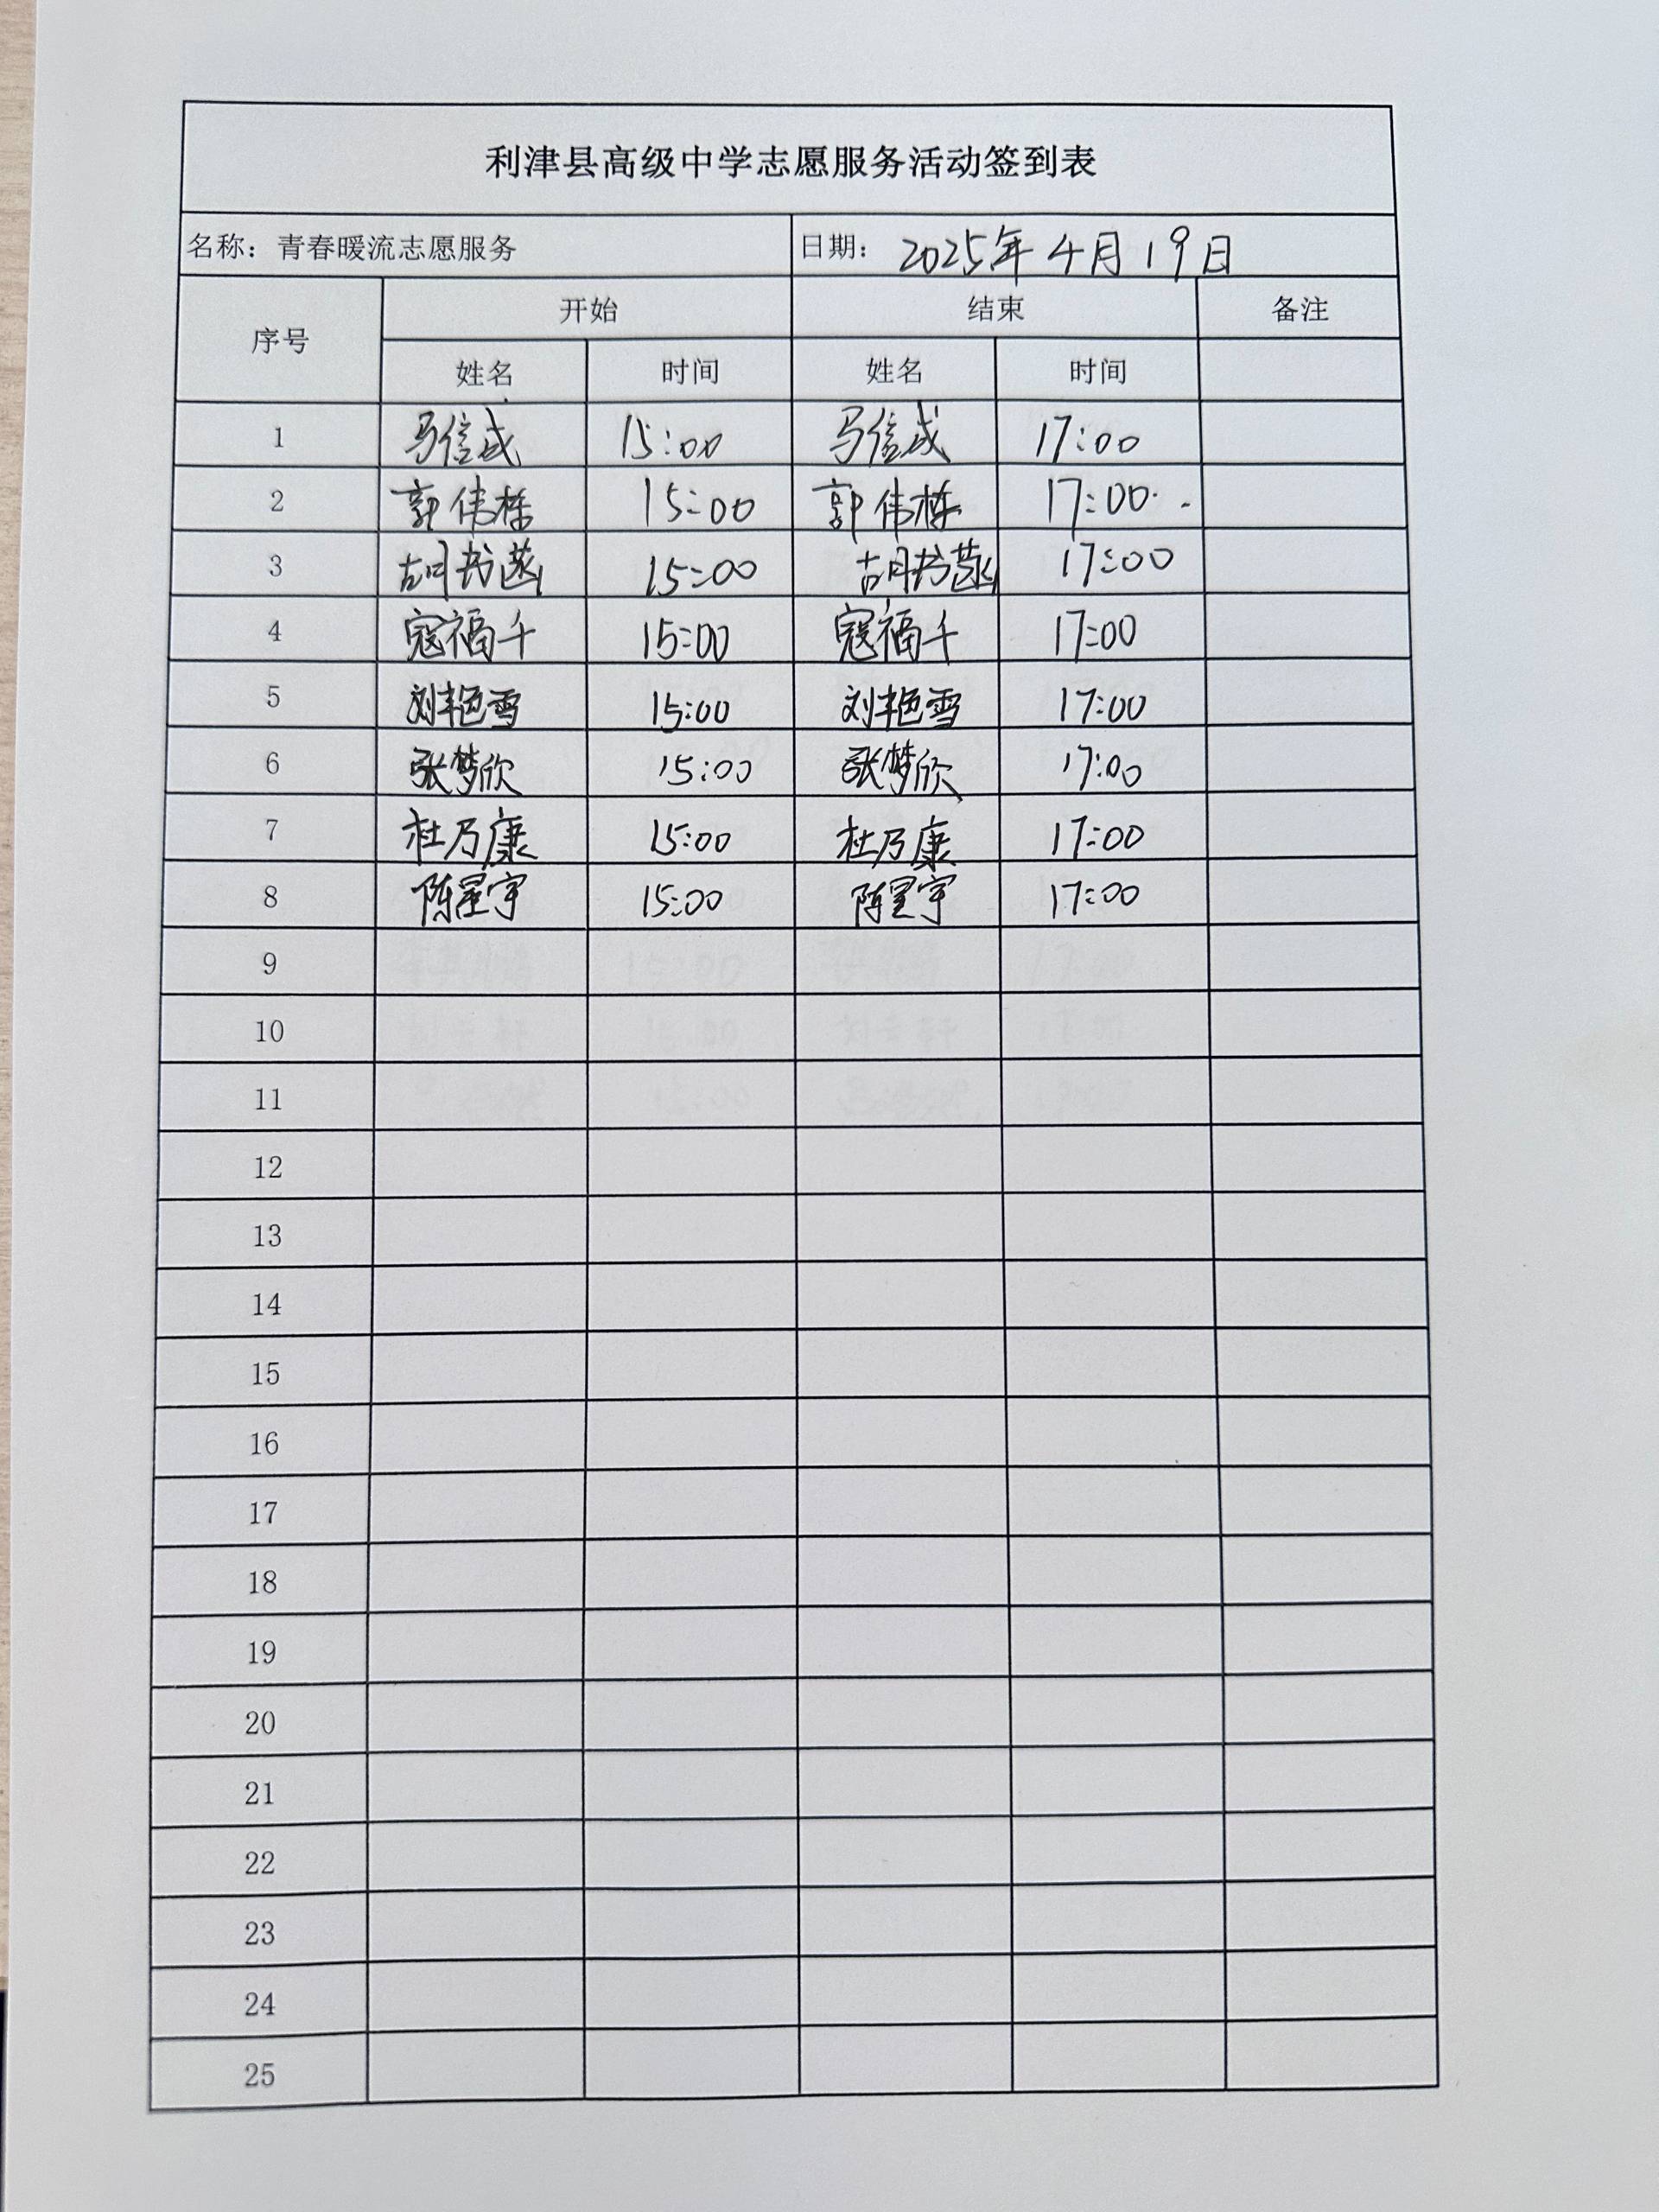 利津县高级中学志愿服务活动签到表
名称：青春暖流志愿服务 日期： 2025年4月19日
序号 开始 结束 备注
姓名 时间 姓名 时间
1 马信成 15:00 马信成 17:00
2 郭伟栋 15:00 郭伟栋 17:00
3 胡书菡 15:00 胡书菡 17:00
4 寇福千 15:00 寇福千 17:00
5 刘艳雪 15:00 刘艳雪 17:00
6 张梦欣 15:00 张梦欣 17:00
7 杜乃康 15:00 杜乃康 17:00
8 陈星宇 15:00 陈星宇 17:00
9
10
11
12
13
14
15
16
17
18
19
20
21
22
23
24
25